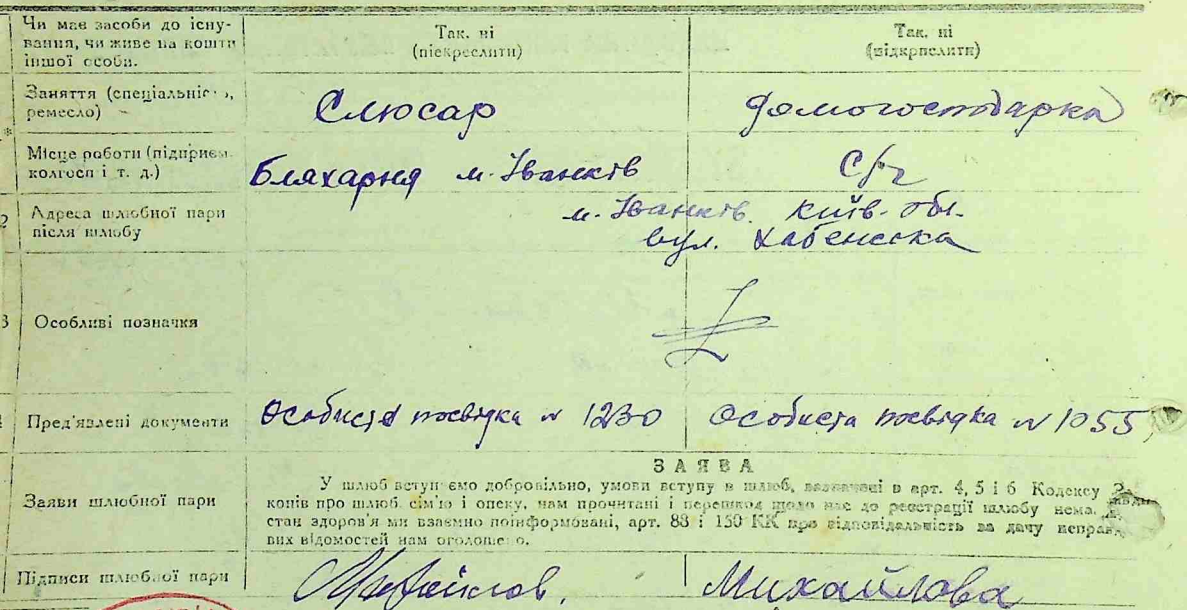 Чи має засоби до існу-
вання, чи живе на кошти
іншої особи.
Так, ні
(піскреслити)
Так, ні
(відкрпслити)
Заняття (спеціальніс
ремесло)
Слюсар
Домогосподарка
Місце роботи (підприєм.
колгосп і т. д.)
Бляхарня м. Іванків
С/г
2 Адреса шлюбної пари
після шлюбу
м. Іванків. Київ. обл.
вул. Хабенська
3 Особливі позначки
Пред'явлені документи
Особиста посвідка № 1230
Особиста посвідка № 1055
ЗАЯВА
Заяви шлюбної пари
У шлюб вступ ємо добровільно, умови вступу в шлюб, зазначені в арт. 4, 5 і 6 Кодексу
конів про шлюб, сім'ю і опеку, нам прочитані і перешкод щодо нас до реєстрації шлюбу нема.
стан здоров'я ми взаємно поінформовані, арт. 88 і 150 КК про відповідальність за дачу неправ
вих відомостей нам оголошено.
Підписи шлюбної пари
Михайлов.
Михайлова